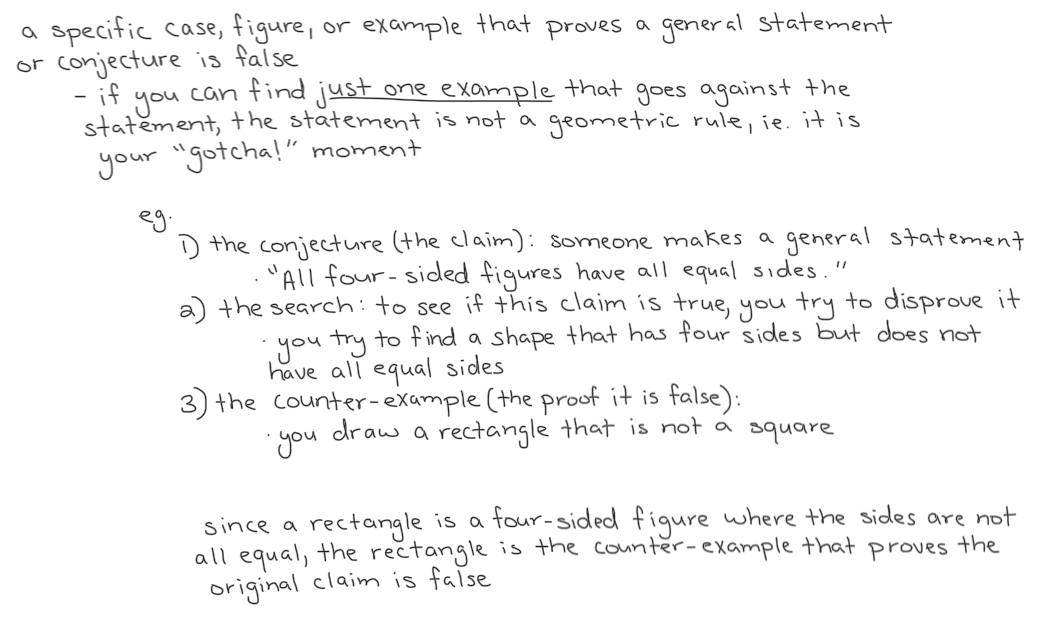 a specific case, figure, or example that proves a general statement
or conjecture is false
- if you can find just one example that goes against the
statement, the statement is not a geometric rule, ie. it is
your "gotcha!" moment
eg.
1) the conjecture (the claim): someone makes a general statement
· "All four-sided figures have all equal sides."
2) the search: to see if this claim is true, you try to disprove it
· you try to find a shape that has four sides but does not
have all equal sides
3) the counter-example (the proof it is false):
· you draw a rectangle that is not a square
since a rectangle is a four-sided figure where the sides are not
all equal, the rectangle is the counter-example that proves the
original claim is false